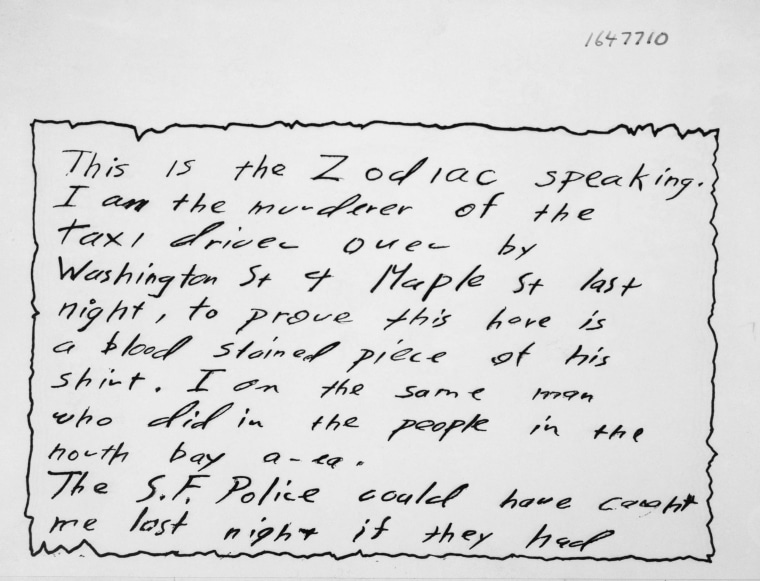 1647710
This is the Zodiac speaking.
I am the murderer of the
taxi driver over by
Washington St + Maple St last
night, to prove this here is
a blood stained piece of his
shirt. I am the same man
who did in the people in the
north bay area.
The S.F. Police could have caught
me last night if they had